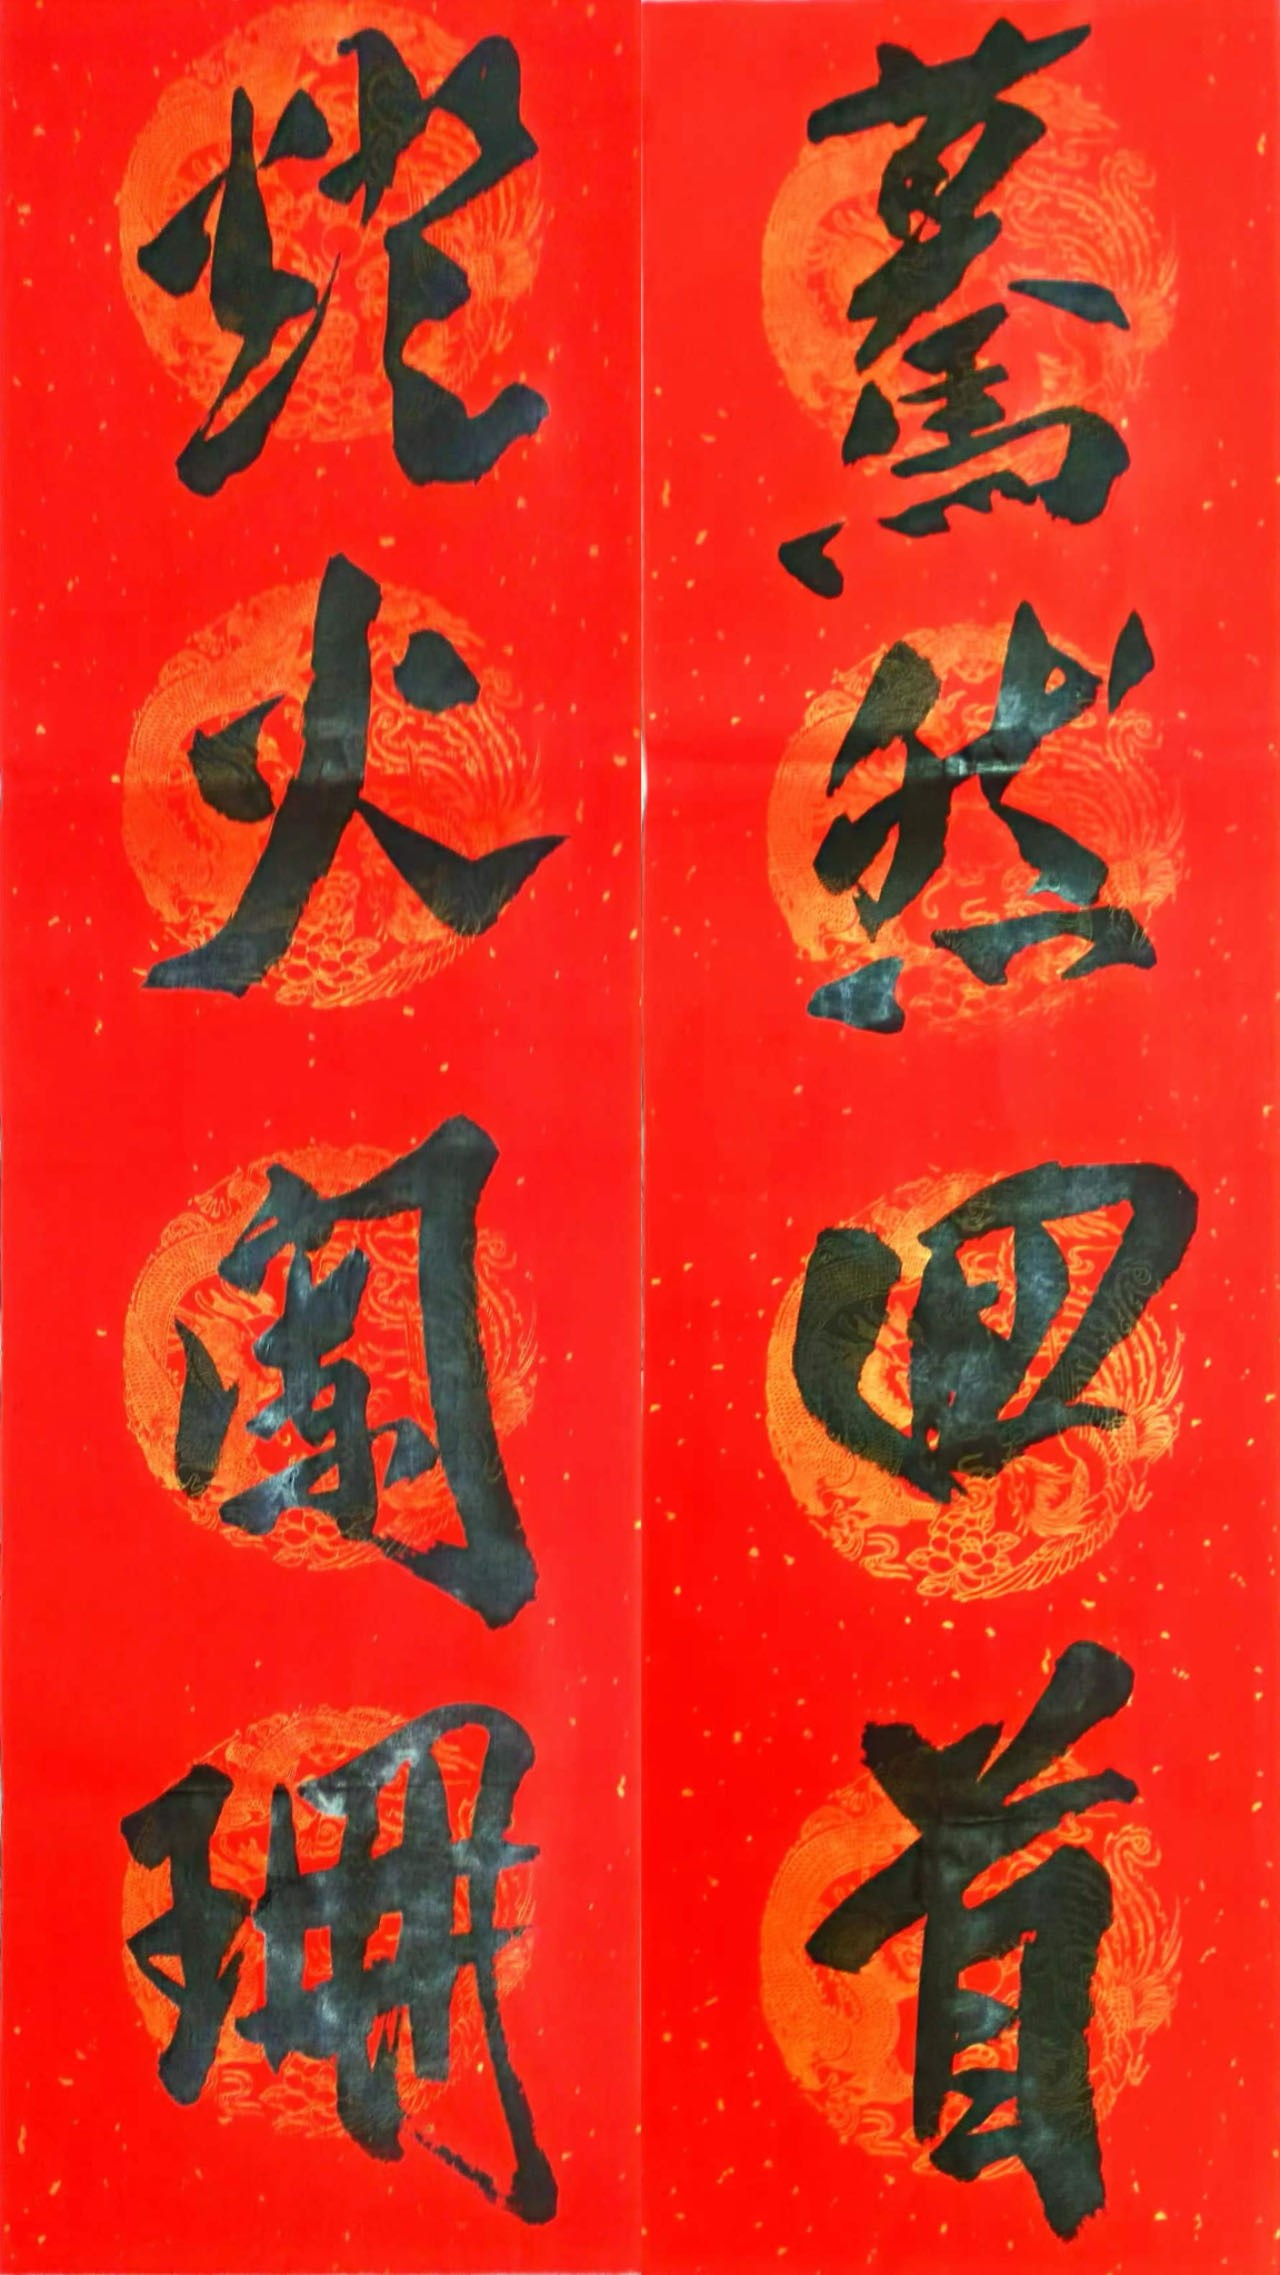 驀然回首
炮火闌珊